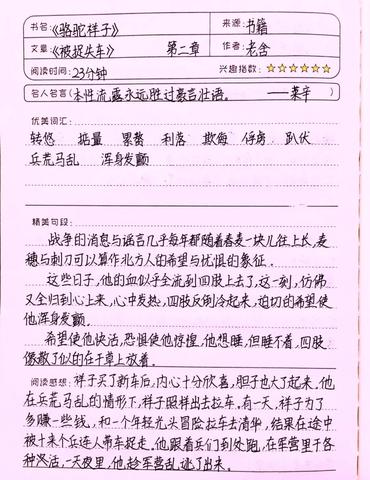 书名:《骆驼祥子》 来源:书籍
文章:《被捉失车》 第二章 作者:老舍
阅读时间:23分钟 兴趣指数:☆☆☆☆☆☆
名人名言(本性流露永远胜过豪言壮语。 ——莱辛 )
优美词汇:
转悠 掂量 累赘 利落 欺侮 俘虏 趴伏
兵荒马乱 浑身发颤
精美句段:
战争的消息与谣言几乎每年都随着春麦一块儿往上长,麦
穗与刺刀可以算作北方人的希望与忧惧的象征.
这些日子,他的血似乎全流到四肢上去了,这一刻,仿佛
又全归到心上来,心中发热,四肢反倒冷起来,迫切的希望使
他浑身发颤.
希望使他快活,恐惧使他惊惶,他想睡,但睡不着,四肢
像散了似的在干草上放着.
阅读感想:祥子买了新车后,内心十分欣喜,胆子也大了起来.他
在兵荒马乱的情形下,祥子照样出去拉车.有一天,祥子为了
多赚一些钱,和一个年轻光头冒险拉车去清华,结果在途中
被十来个兵连人带车捉走.他跟着兵们到处跑,在军营里干各
种兴活,一天夜里,他趁军营乱逃了出来.